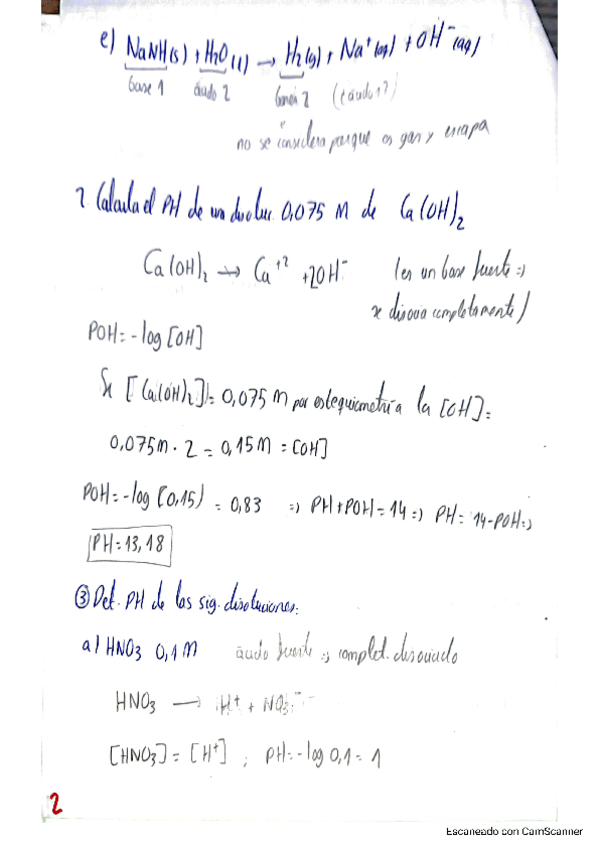 e) NaNH(s) + H₂O(l) → H₂(g) + Na⁺(aq) + OH⁻(aq)
base 1 ácido 2 base 2 (ácido 1?)
no se considera porque es gas y escapa
2 Calcula el PH de una disoluc. 0,075 M de Ca(OH)₂
Ca(OH)₂ → Ca⁺² + 2OH⁻ (es un base fuerte ⇒
x disocia completamente)
POH = -log [OH]
Si [Ca(OH)₂] = 0,075 M por estequiometría la [OH] =
0,075M · 2 = 0,15M = [OH]
POH = -log (0,15) = 0,83 ⇒ PH + POH = 14 ⇒ PH = 14-POH ⇒
PH = 13,18
③ Det. PH de las sig. disoluciones:
a) HNO₃ 0,1 M ácido fuerte ⇒ complet. disociado
HNO₃ → H⁺ + NO₃⁻
[HNO₃] = [H⁺] ; PH = -log 0,1 = 1
2
Escaneado con CamScanner